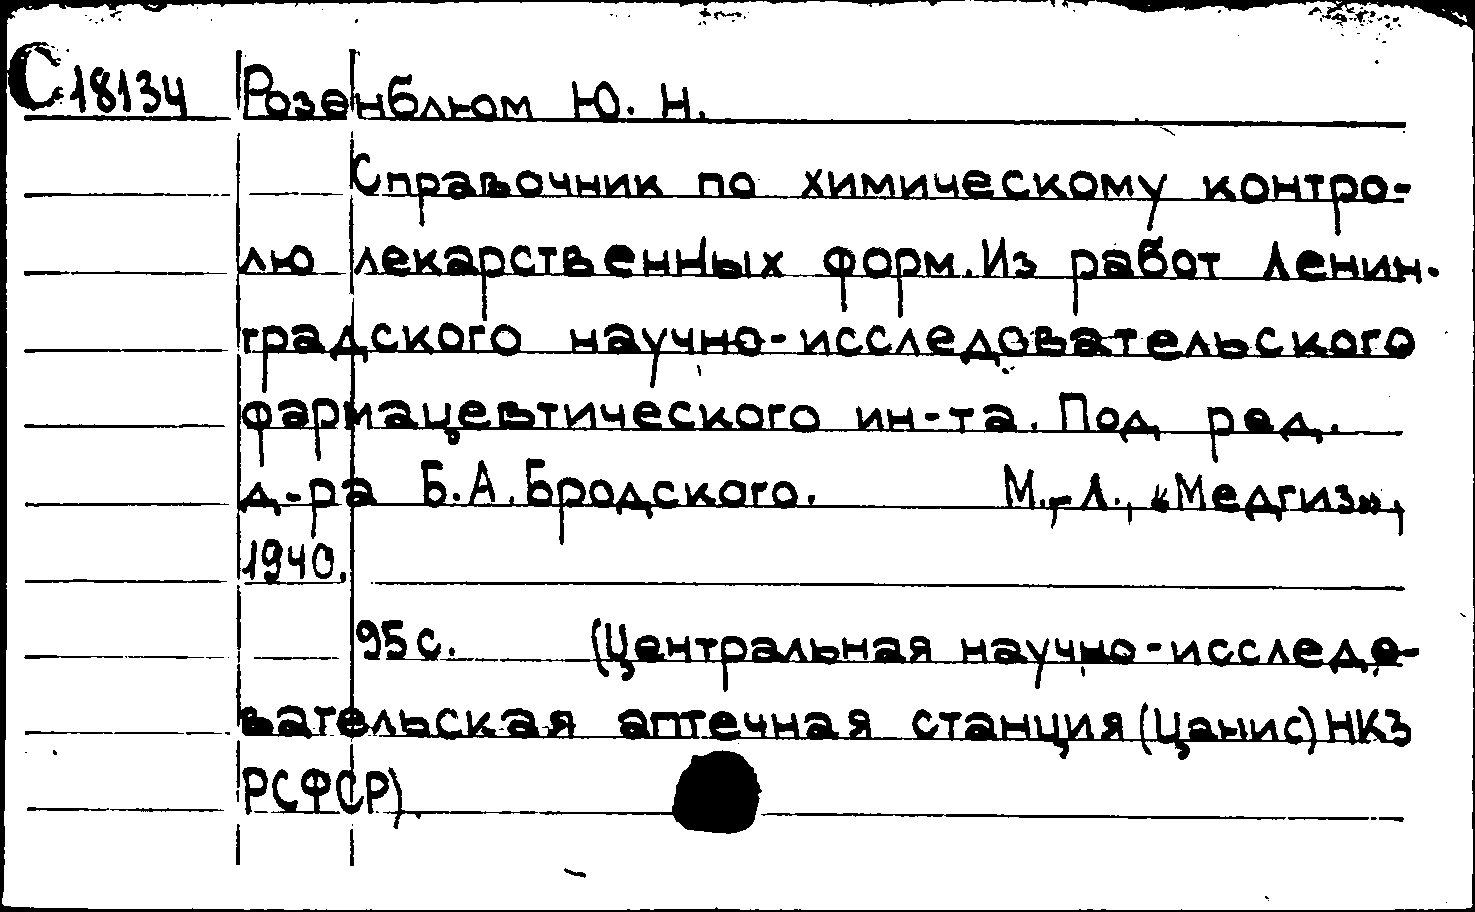 С18134 Розенблюм Ю. Н.
Справочник по химическому контро-
лю лекарственных форм. Из работ Ленин.
градского научно-исследовательского
фармацевтического ин-та. Под ред.
д-ра Б.А.Бродского. М.,-Л., «Медгиз»,
1940.
95 с. (Центральная научно-исследо-
вательская аптечная станция (Цанис) НКЗ
РСФСР).